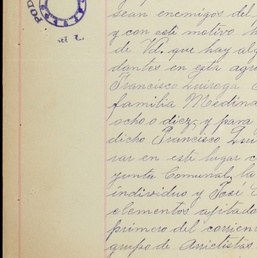 sean enemigos del
y con este motivo h
de Vd. que hay alg
dantes en esta agru
Francisco Quiroga
familia Medina
ocho o diez, y para
dicho Francisco Qui
rar en este lugar c
junta Comunal, la
individuo y José
elementos agitado
primero del corrien
grupo de Anictistas